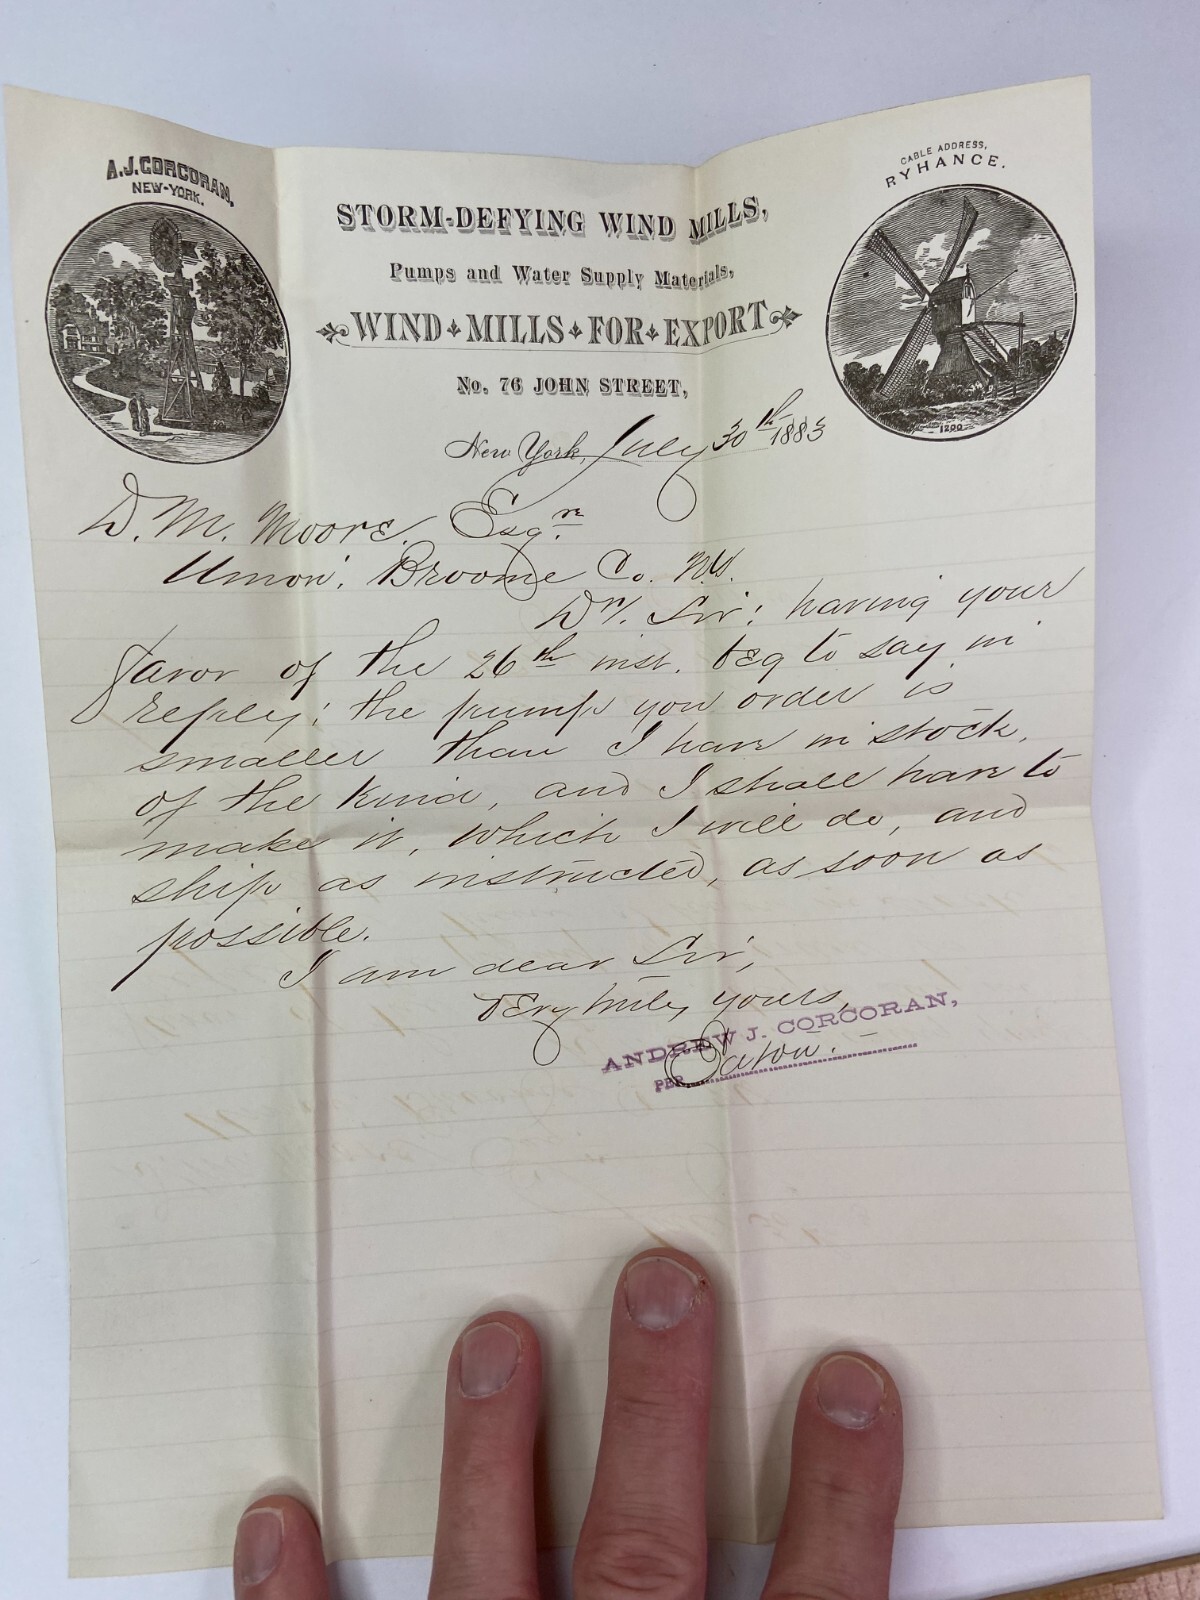 A.J. CORCORAN,
NEW-YORK.
CABLE ADDRESS,
RYHANCE.
STORM-DEFYING WIND MILLS,
Pumps and Water Supply Materials,
WIND MILLS FOR EXPORT
No. 76 JOHN STREET,
1200
New York, July 30th 1883
D. M. Moore, Esqre
Union, Broome Co. N.Y.
Dr. Sir: having your
favor of the 26th inst. beg to say in
reply: the pump you order is
smaller than I have in stock,
of the kind, and I shall have to
make it, which I will do, and
ship as instructed, as soon as
possible.
I am dear Sir,
Very truly yours,
ANDREW J. CORCORAN,
PER Eaton.